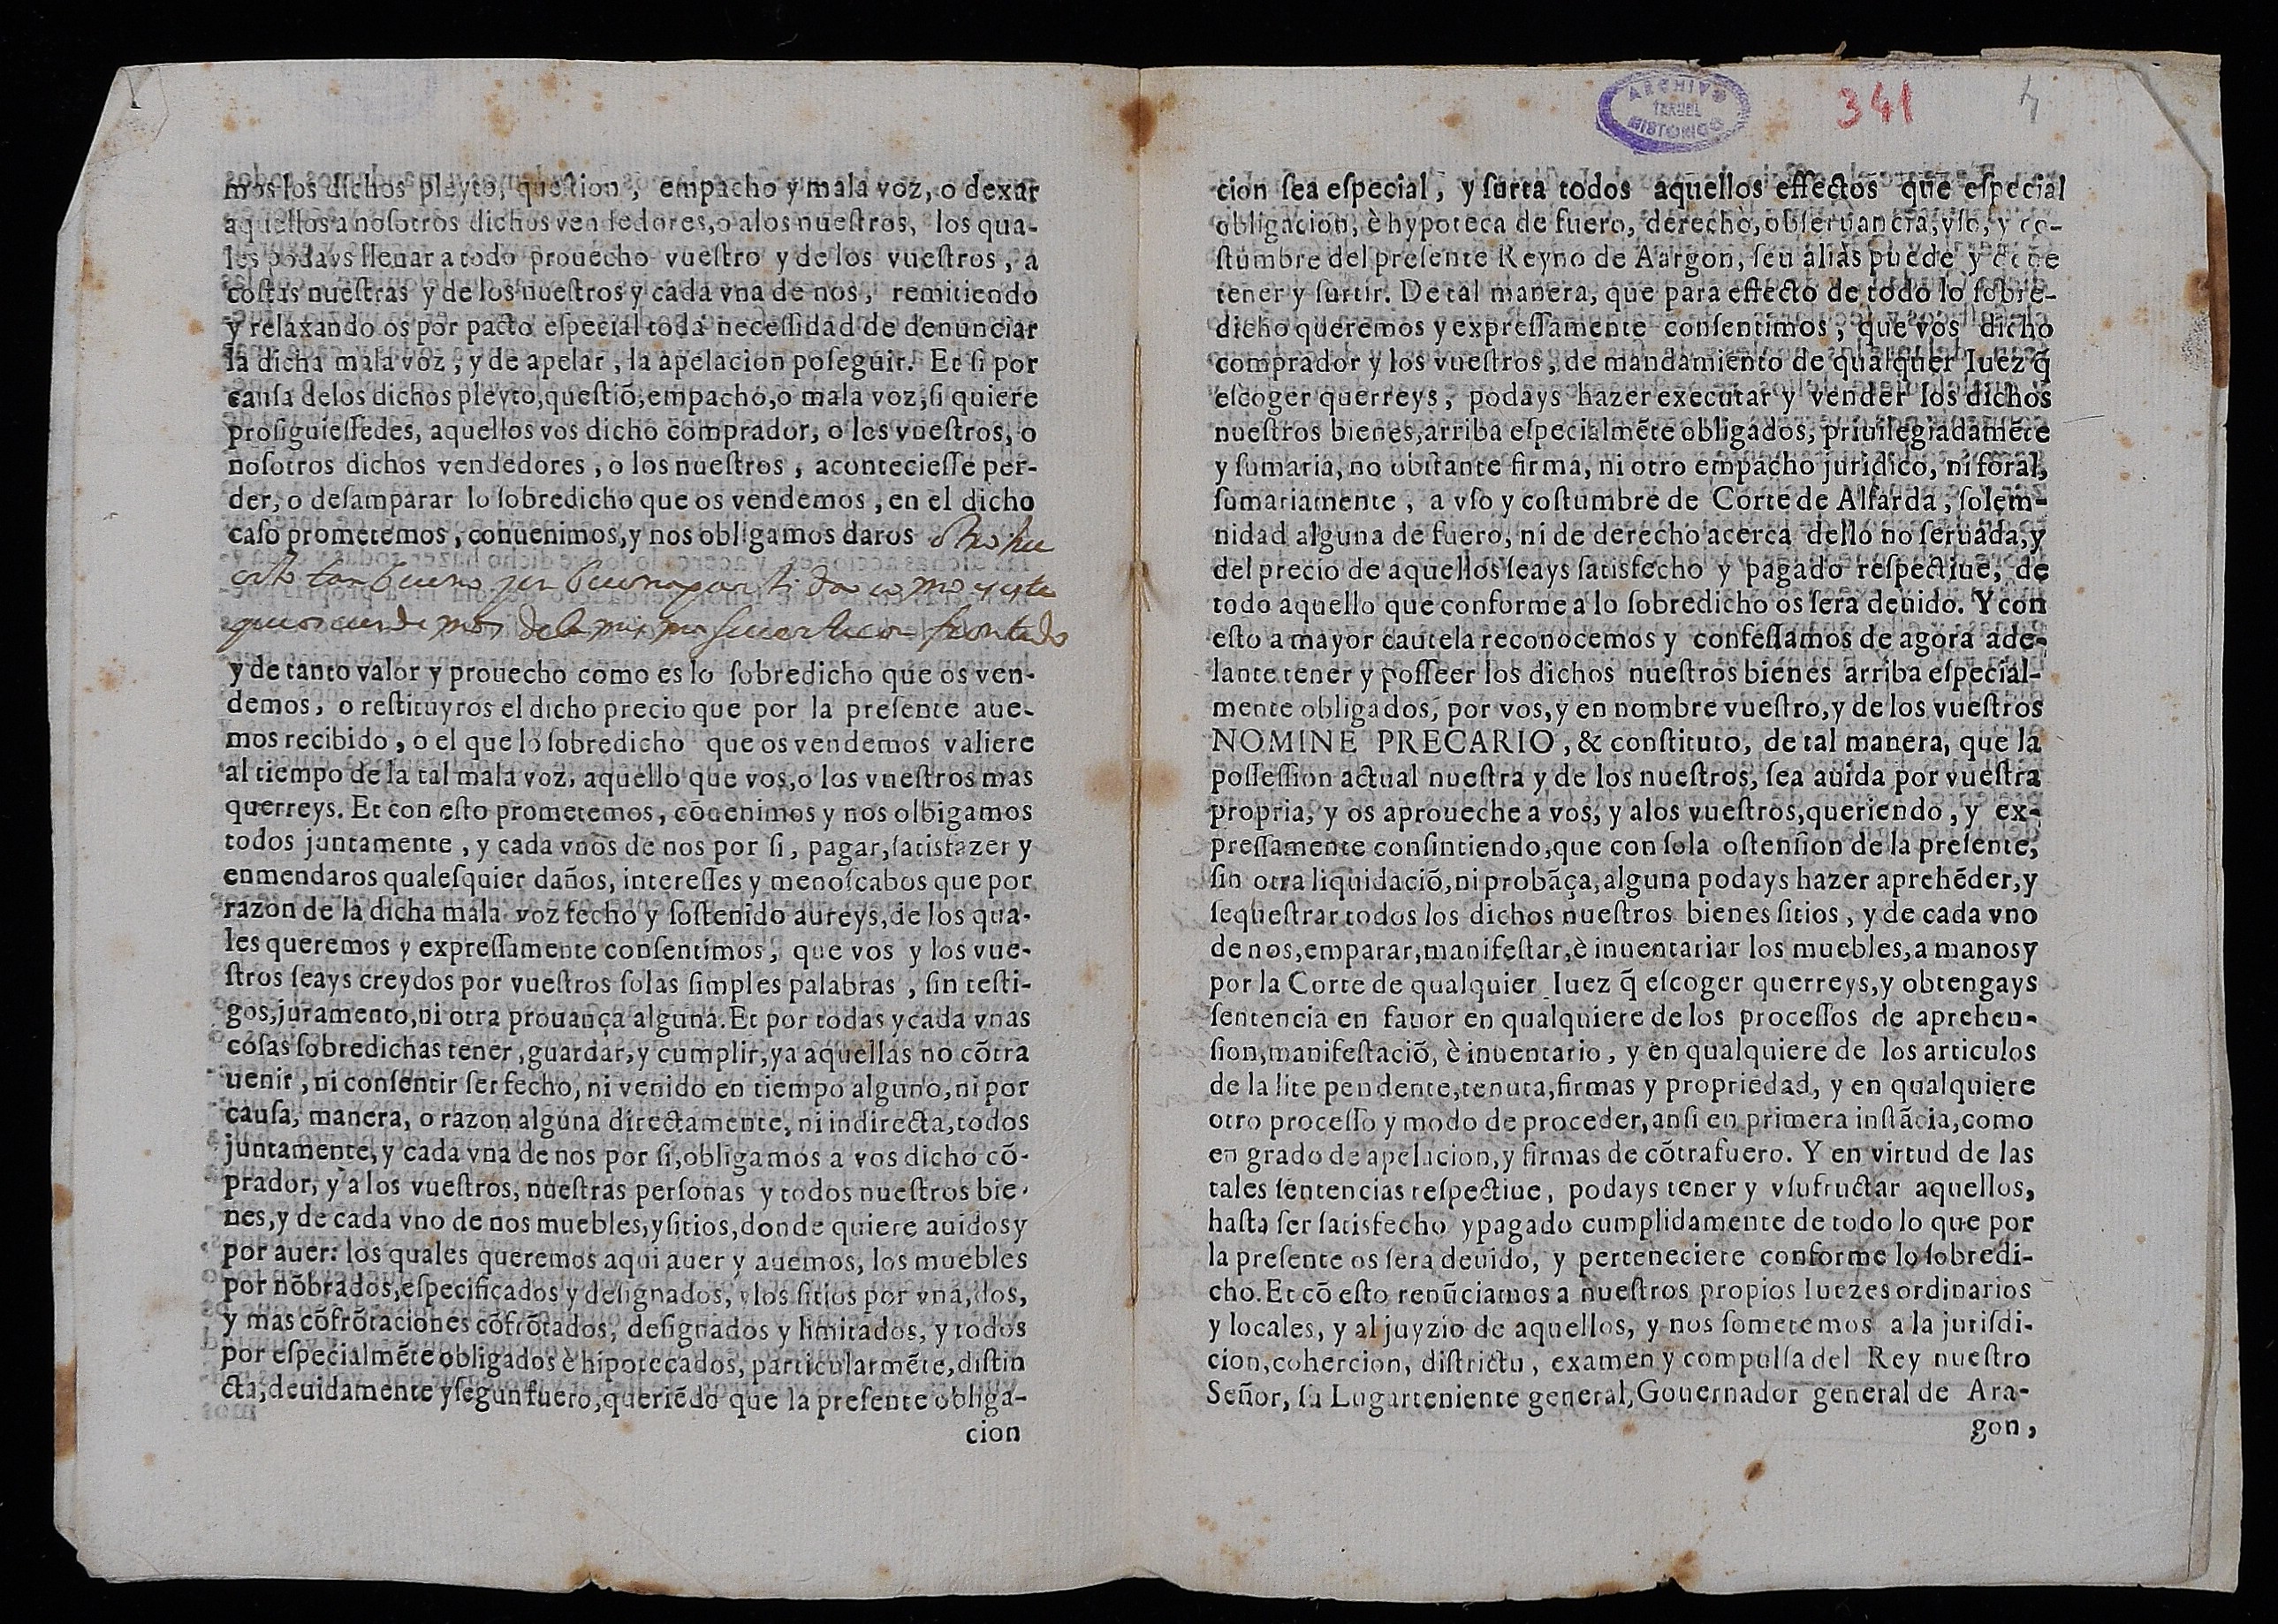 mos los dichos pleyto, question, empacho y mala voz, o dexar
aquellos a nosotros dichos vendedores, o a los nuestros, los qua-
les podays lleuar a todo prouecho vuestro y de los vuestros, a
costas nuestras y de los nuestros y cada vna de nos, remitiendo
y relaxando os por pacto especial toda necessidad de denunciar
la dicha mala voz, y de apelar, la apelacion poseguir. Et si por
causa delos dichos pleyto, questiõ, empacho, o mala voz, si quiere
prosiguiessedes, aquellos vos dicho comprador, o los vuestros, o
nosotros dichos vendedores, o los nuestros, aconteciesse per-
der, o desamparar lo sobredicho que os vendemos, en el dicho
caso prometemos, conuenimos, y nos obligamos daros otro hu
erto tan bueno
que os uendemos de la misma suerte confrontado
y de tanto valor y prouecho como es lo sobredicho que os ven-
demos, o restituyros el dicho precio que por la presente aue-
mos recibido, o el que lo sobredicho que os vendemos valiere
al tiempo de la tal mala voz, aquello que vos, o los vuestros mas
querreys. Et con esto prometemos, cõuenimos y nos olbigamos
todos juntamente, y cada vnos de nos por si, pagar, satisfazer y
enmendaros qualesquier daños, interesses y menoscabos que por
razon de la dicha mala voz fecho y sostenido aureys, de los qua-
les queremos y expressamente consentimos, que vos y los vue-
stros seays creydos por vuestros solas simples palabras, sin testi-
gos, juramento, ni otra prouança alguna. Et por todas y cada vnas
cosas sobredichas tener, guardar, y cumplir, ya aquellas no cõtra
uenir, ni consentir ser fecho, ni venido en tiempo alguno, ni por
causa, manera, o razon alguna directamente, ni indirecta, todos
juntamente, y cada vna de nos por si, obligamos a vos dicho cõ-
prador, y a los vuestros, nuestras personas y todos nuestros bie-
nes, y de cada vno de nos muebles, y sitios, donde quiere auidos y
por auer: los quales queremos aqui auer y auemos, los muebles
por nõbrados, especificados y designados, y los sitios por vna, dos,
y mas cõfrõtaciones cõfrõtados, designados y limitados, y todos
por especialmẽte obligados è hipotecados, particularmẽte, distin
cta, deuidamente y segun fuero, queriẽdo que la presente obliga-
cion
ARCHIVO
TERUEL
HISTORICO
341
4
cion sea especial, y surta todos aquellos effectos que especial
obligacion, è hypoteca de fuero, derecho, obseruancia, vso, y co-
stumbre del presente Reyno de Aargon, seu aliàs puede y deue
tener y surtir. De tal manera, que para effecto de todo lo sobre-
dicho queremos y expressamente consentimos, que vos dicho
comprador y los vuestros, de mandamiento de qualquer Iuez q̃
escoger querreys, podays hazer executar y vender los dichos
nuestros bienes, arriba especialmẽte obligados, priuilegiadamẽte
y sumaria, no obstante firma, ni otro empacho juridico, ni foral,
sumariamente, a vso y costumbre de Corte de Alfarda, solem-
nidad alguna de fuero, ni de derecho acerca dello no seruada, y
del precio de aquellos seays satisfecho y pagado respectiue, de
todo aquello que conforme a lo sobredicho os sera deuido. Y con
esto a mayor cautela reconocemos y confessamos de agora ade-
lante tener y posseer los dichos nuestros bienes arriba especial-
mente obligados, por vos, y en nombre vuestro, y de los vuestros
NOMINE PRECARIO, & constituto, de tal manera, que la
possession actual nuestra y de los nuestros, sea auida por vuestra
propria, y os aproueche a vos, y alos vuestros, queriendo, y ex-
pressamente consintiendo, que con sola ostension de la presente,
sin otra liquidaciõ, ni probãça, alguna podays hazer aprehẽder, y
sequestrar todos los dichos nuestros bienes sitios, y de cada vno
de nos, emparar, manifestar, è inuentariar los muebles, a manos y
por la Corte de qualquier Iuez q̃ escoger querreys, y obtengays
sentencia en fauor en qualquiere de los processos de aprehen-
sion, manifestaciõ, è inuentario, y en qualquiere de los articulos
de la lite pendente, tenuta, firmas y propriedad, y en qualquiere
otro processo y modo de proceder, ansi en primera instãcia, como
en grado de apelacion, y firmas de cõtrafuero. Y en virtud de las
tales sentencias respectiue, podays tener y vsufructar aquellos,
hasta ser satisfecho y pagado cumplidamente de todo lo que por
la presente os sera deuido, y perteneciere conforme lo sobredi-
cho. Et cõ esto renũciamos a nuestros propios Iuezes ordinarios
y locales, y al juyzio de aquellos, y nos sometemos a la jurisdi-
cion, cohercion, districtu, examen y compulsa del Rey nuestro
Señor, su Lugarteniente general, Gouernador general de Ara-
gon,